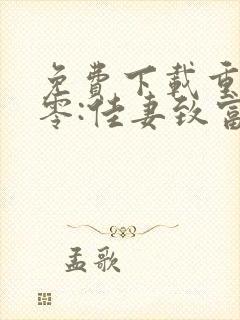 免费下载重
零:佳妻致富
孟歌